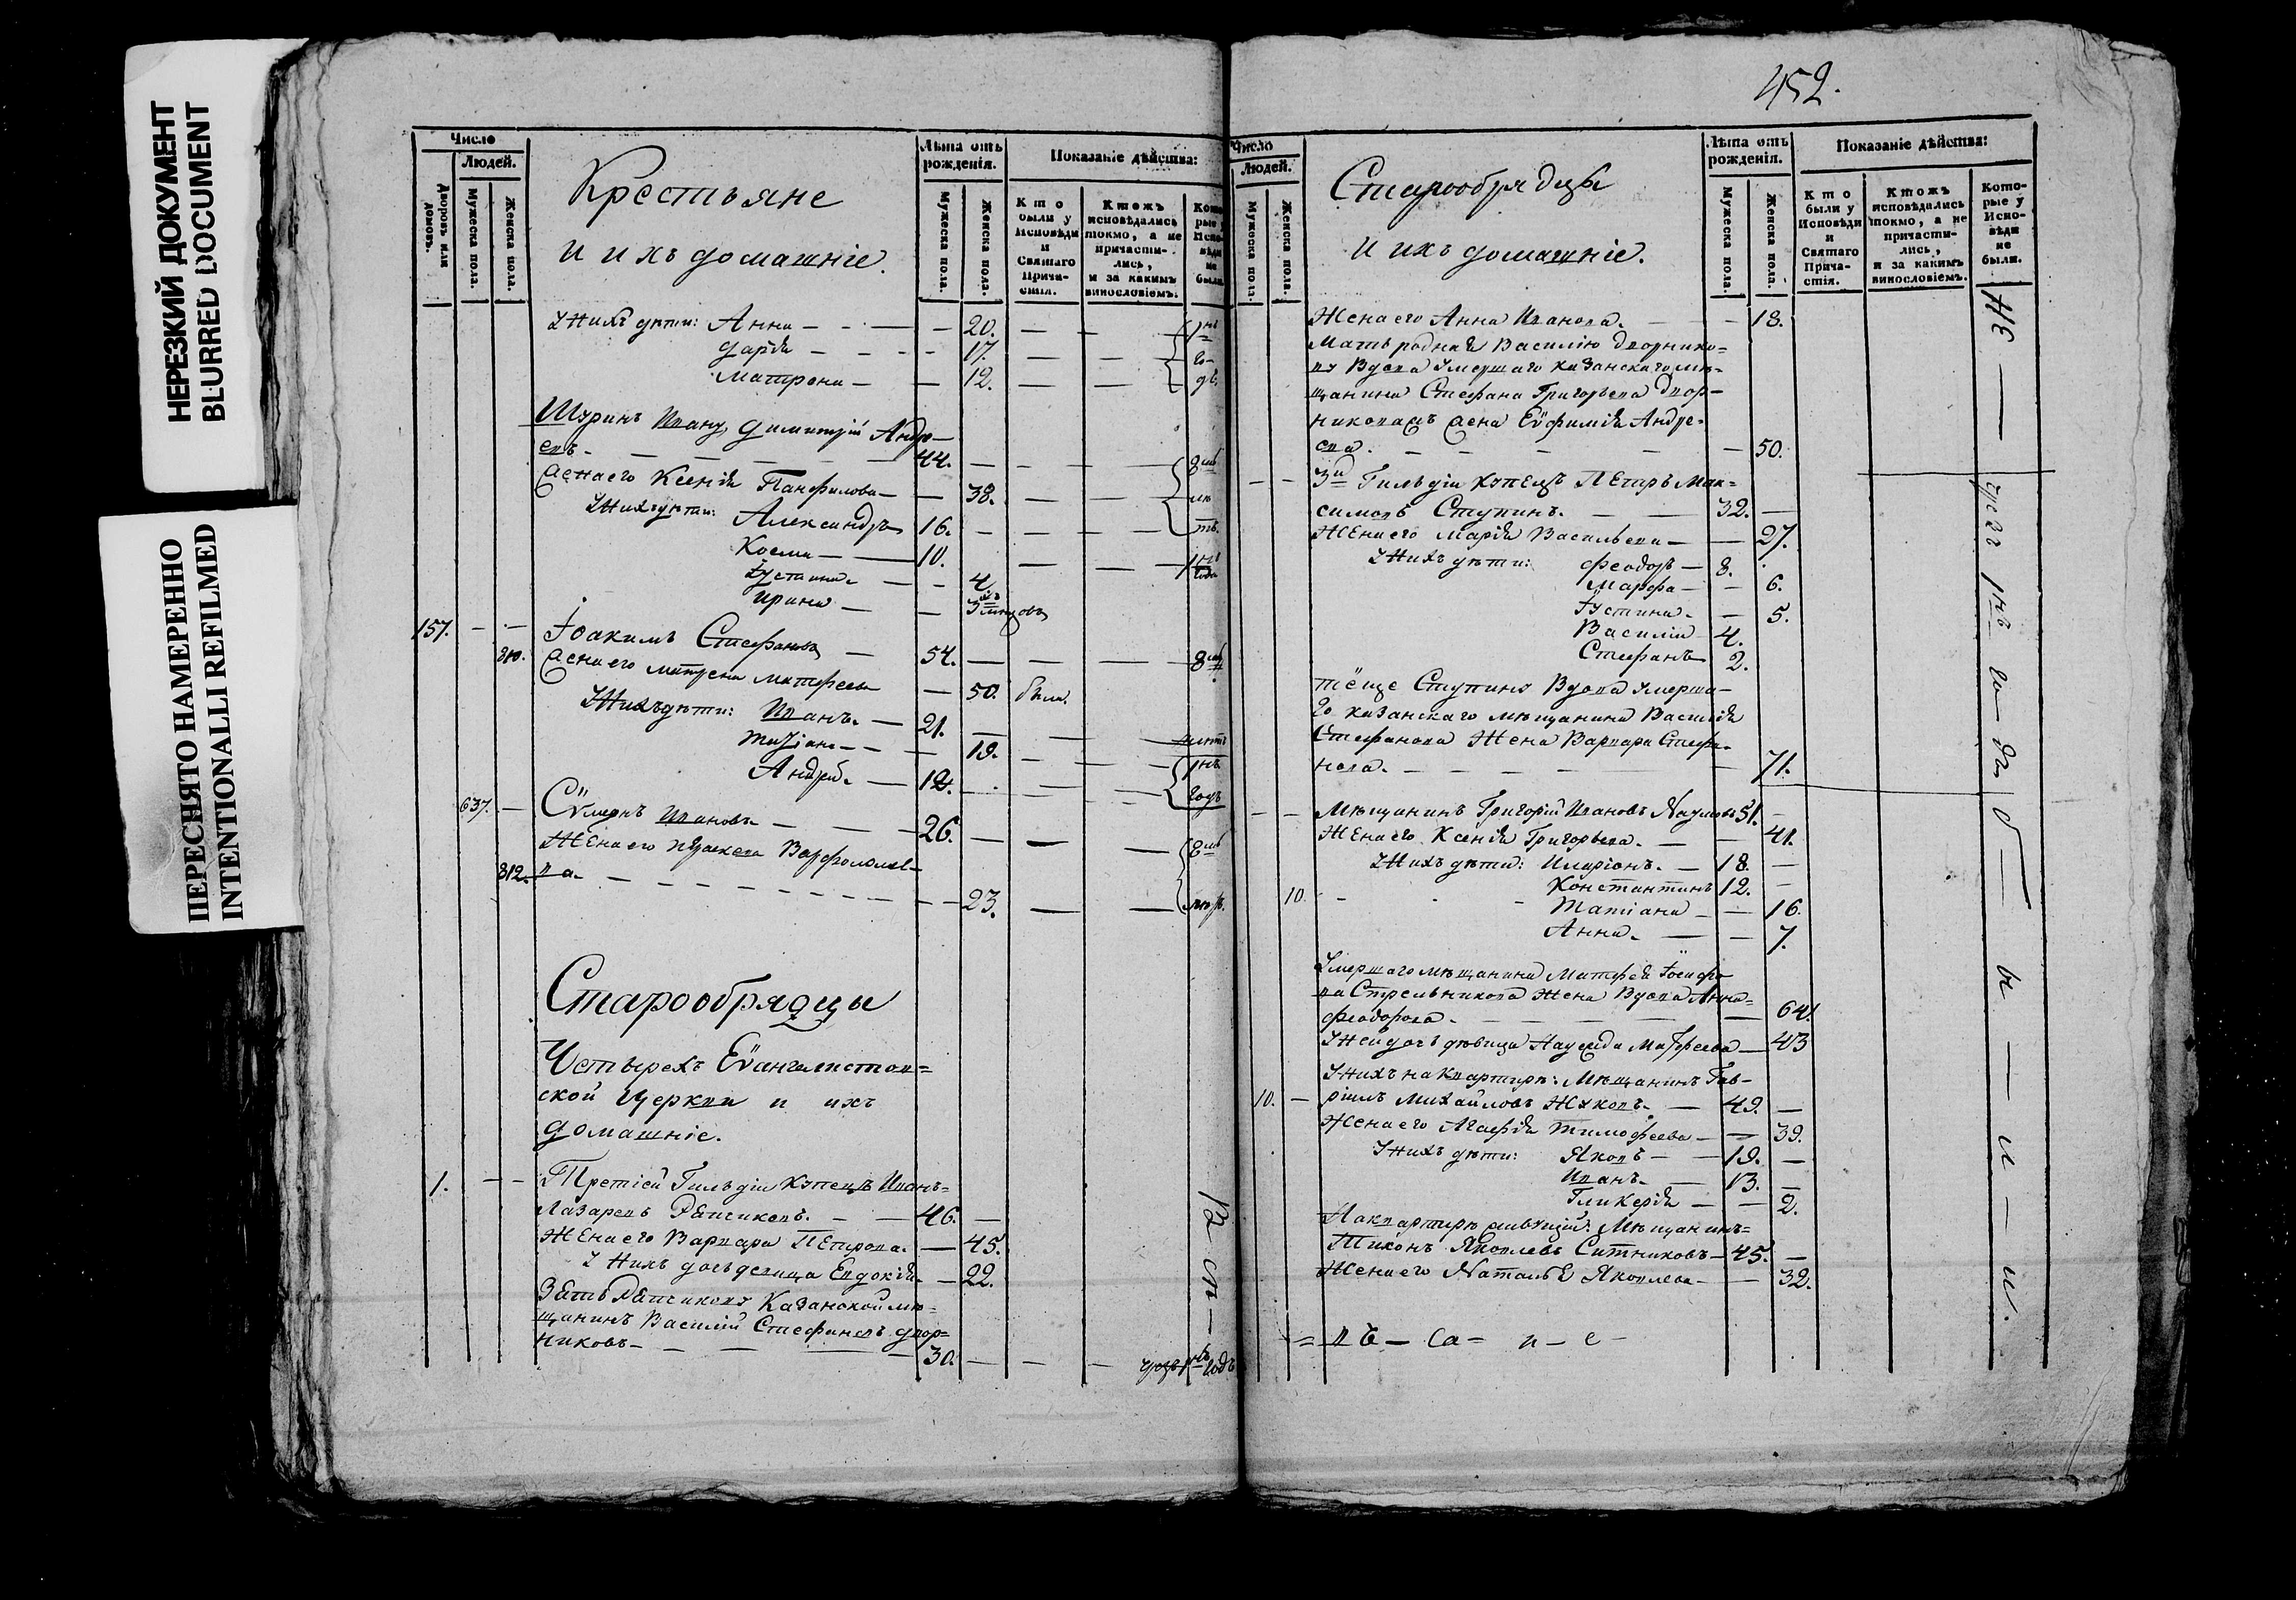 НЕРЕЗКИЙ ДОКУМЕНТ
BLURRED DOCUMENT
ПЕРЕСНЯТО НАМЕРЕННО
INTENTIONALLI REFILMED
Число
Людей.
Дворовъ или домовъ.
Мужеска пола.
Женска пола.
Крестьяне
и ихъ домашніе.
Лѣта отъ рожденія.
Мужеска пола.
Женска пола.
Показаніе дѣйства:
Кто были у Исповѣди и Святаго Прича-стія.
Ктожъ исповѣдались токмо, а не причасти-лись, и за какимъ винословіемъ.
У нихъ дѣти: Анна — 20. —
Дарія — 17. —
Матрона — 12. —
Шуринъ Ивану Димитрій Андре-
евъ — 44. —
Жена его Ксенія Панфилова — 38. —
У нихъ дѣти: Александръ 16. —
Косма — 10. —
Іустина — 4
Ирина — 3 мѣсцовъ
157. — Іоакимъ Стефановъ — 54. —
810. Жена его Матрена Матфеева — 50. была.
У нихъ дѣти: Иванъ — 21. —
Татіана — 19. —
Андрей — 12. —
637. — Сѵмеонъ Ивановъ — 26. —
Жена его Параскева Варфоломее-
812. ва — 23. —
Старообрядцы
Четырехъ Еѵангелистов=
ской Церкви и ихъ
домашніе.
1. — Третіей Гильдіи Купецъ Иванъ=
Лазаревъ — 46. —
Жена его Варвара Петрова. — 45.
У нихъ дочь девица Евдокія — 22.
Зять Казанской мѣ=
щанинъ Василій Стефановъ Двор=
никовъ — 30. — годъ
452.
Число
Людей.
Мужеска пола.
Женска пола.
Старообрядцы
и ихъ домашніе.
Лѣта отъ рожденія.
Мужеска пола.
Женска пола.
Показаніе дѣйства:
Кто были у Исповѣди и Святаго Прича-стія.
Ктожъ исповѣдались токмо, а не причасти-лись, и за какимъ винословіемъ.
Кото-рые у Испо-вѣди не были.
Жена его Анна Иванова. — 18.
Мать родная Василію Дворнико=
ву Вдова умершаго казанскаго мѣ=
щанина Стефана Григорьева Двор-
никова жена Еѵфимія Андре-
ева. — 50.
3й Гильдіи Купецъ Петръ Мак=
симовъ Ступинъ. — 32. —
Жена его Марія Васильева — 27.
У нихъ дѣти: Феодоръ — 8.
Марфа — 6.
Іустина — 5.
Василій 4.
Стефанъ 2.
Тёще Ступина Вдова умерша-
го казанскаго мѣщанина Василія
Стефанова Жена Варвара Стефа-
нова. — 71.
Мѣщанинъ Григорій Ивановъ Наумовъ 51. —
Жена его Ксенія Григорьева. — 41.
У нихъ дѣти: Иларіонъ. — 18. —
Константинъ 12. —
10. Татіана — 16.
Анна. — 7.
Умершаго мѣщанина Матфея Іосифо
ва Стрельникова Жена Вдова Анна=
Феодорова. — 64.
У ней дочь девица Надежда Матфеева — 43
У нихъ на квартирѣ: Мѣщанинъ Гав-
10. — ріилъ Михайловъ Жуковъ. — 49. —
Жена его Агафія Тимофеева — 39.
У нихъ дѣти: Яковъ — 19. —
Иванъ. — 13. —
Гликерія — 2.
На квартирѣ живущій: Мѣщанинъ=
Тихонъ Яковлевъ Ситниковъ — 45. —
Жена его Наталья Яковлева — 32.